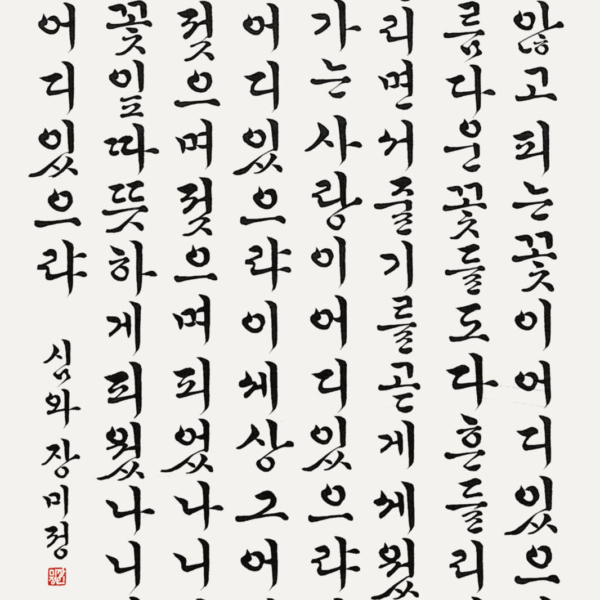 않고피는꽃이어디있으
름다운꽃들도다흔들리
리면서줄기를곧게세웠
가는사랑이어디있으랴
어디있으랴이세상그어
젖으며젖으며피었나니
꽃잎따뜻하게피웠나니
어디있으랴
심와장미정